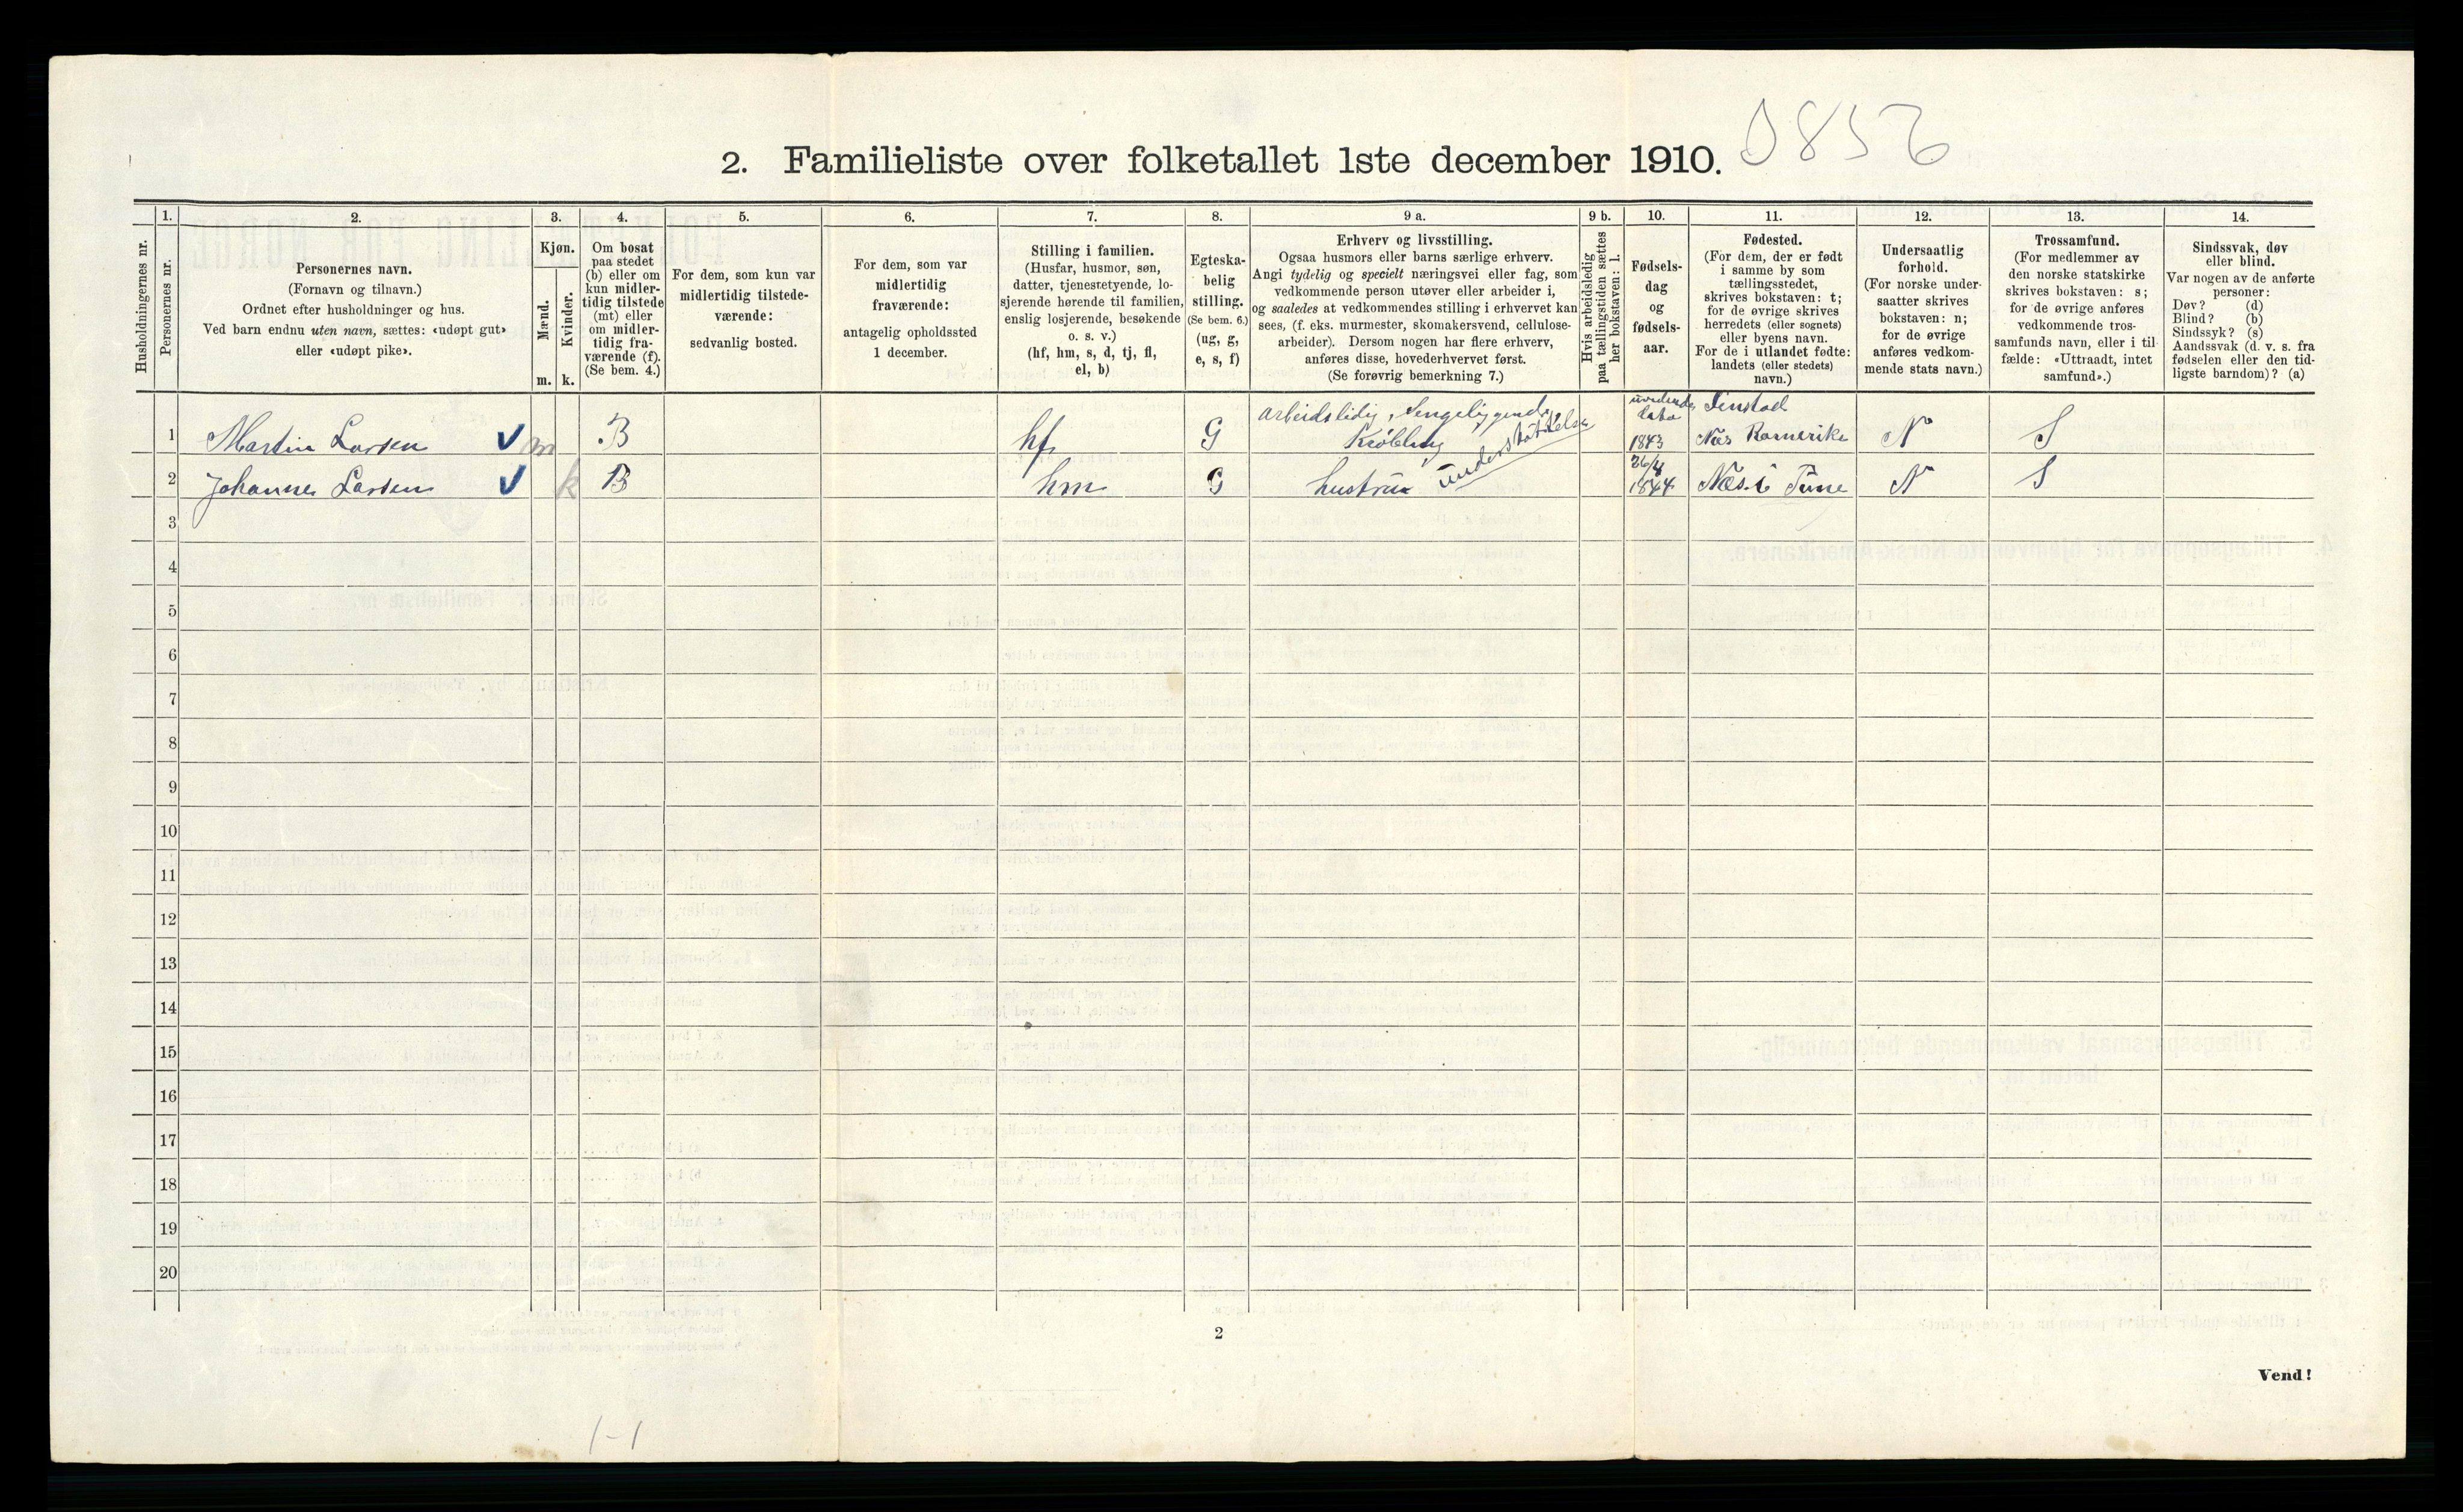 2. Familieliste over folketallet 1ste december 1910. 0856
Husholdningernes nr.
1. Personernes nr.
2. Personernes navn.
(Fornavn og tilnavn.)
Ordnet efter husholdninger og hus.
Ved barn endnu uten navn, sættes: «udøpt gut»
eller «udøpt pike».
3. Kjøn.
Mænd. m.
Kvinder. k.
4. Om bosat
paa stedet
(b) eller om
kun midler-
tidig tilstede
(mt) eller
om midler-
tidig fra-
værende (f).
(Se bem. 4.)
5. For dem, som kun var
midlertidig tilstede-
værende:
sedvanlig bosted.
6. For dem, som var
midlertidig
fraværende:
antagelig opholdssted
1 december.
7. Stilling i familien.
(Husfar, husmor, søn,
datter, tjenestetyende, lo-
sjerende hørende til familien,
enslig losjerende, besøkende
o. s. v.)
(hf, hm, s, d, tj, fl,
el, b)
8. Egteska-
belig
stilling.
(Se bem. 6.)
(ug, g,
e, s, f)
9 a. Erhverv og livsstilling.
Ogsaa husmors eller barns særlige erhverv.
Angi tydelig og specielt næringsvei eller fag, som
vedkommende person utøver eller arbeider i,
og saaledes at vedkommendes stilling i erhvervet kan
sees, (f. eks. murmester, skomakersvend, cellulose-
arbeider). Dersom nogen har flere erhverv,
anføres disse, hovederhvervet først.
(Se forøvrig bemerkning 7.)
9 b. Hvis arbeidsledig
paa tællingstiden sættes
her bokstaven: l.
10. Fødsels-
dag
og
fødsels-
aar.
11. Fødested.
(For dem, der er født
i samme by som
tællingsstedet,
skrives bokstaven: t;
for de øvrige skrives
herredets (eller sognets)
eller byens navn.
For de i utlandet fødte:
landets (eller stedets)
navn.)
12. Undersaatlig
forhold.
(For norske under-
saatter skrives
bokstaven: n;
for de øvrige
anføres vedkom-
mende stats navn.)
13. Trossamfund.
(For medlemmer av
den norske statskirke
skrives bokstaven: s;
for de øvrige anføres
vedkommende tros-
samfunds navn, eller i til-
fælde: «Uttraadt, intet
samfund».)
14. Sindssvak, døv
eller blind.
Var nogen av de anførte
personer:
Døv? (d)
Blind? (b)
Sindssyk? (s)
Aandssvak (d. v. s. fra
fødselen eller den tid-
ligste barndom)? (a)
1 Martin Larsen m B hf G arbeidslidig, Sengeliggende, Krøbling understøttelse 1843 Næs Romerike N S
2 Johanne Larsen k B hm G hustrue 26/4 1844 Næs i Tune N S
3
4
5
6
7
8
9
10
11
12
13
14
15
16
17
18
19
20
2
Vend!
1-1